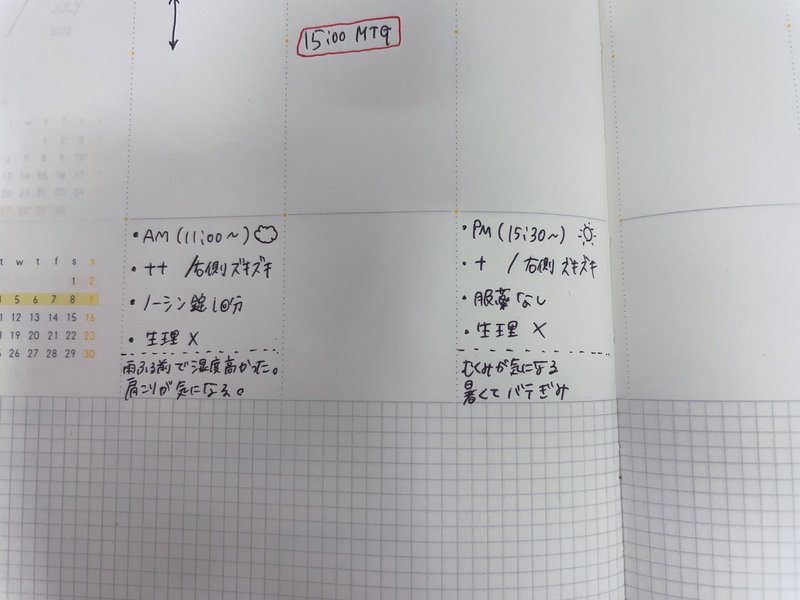 15:00 MTG
・AM (11:00〜)
・++ /右側ズキズキ
・ノーシン錠1回分
・生理 ×
雨ふる前で湿度高かった。
肩こりが気になる。
・PM (15:30〜)
・+ / 右側 ズキズキ
・服薬なし
・生理 ×
むくみが気になる
暑くてバテぎみ
t w t f s s
1 2
4 5 6 7 8 9
11 12 13 14 15 16
18 19 20 21 22 23
25 26 27 28 29 30